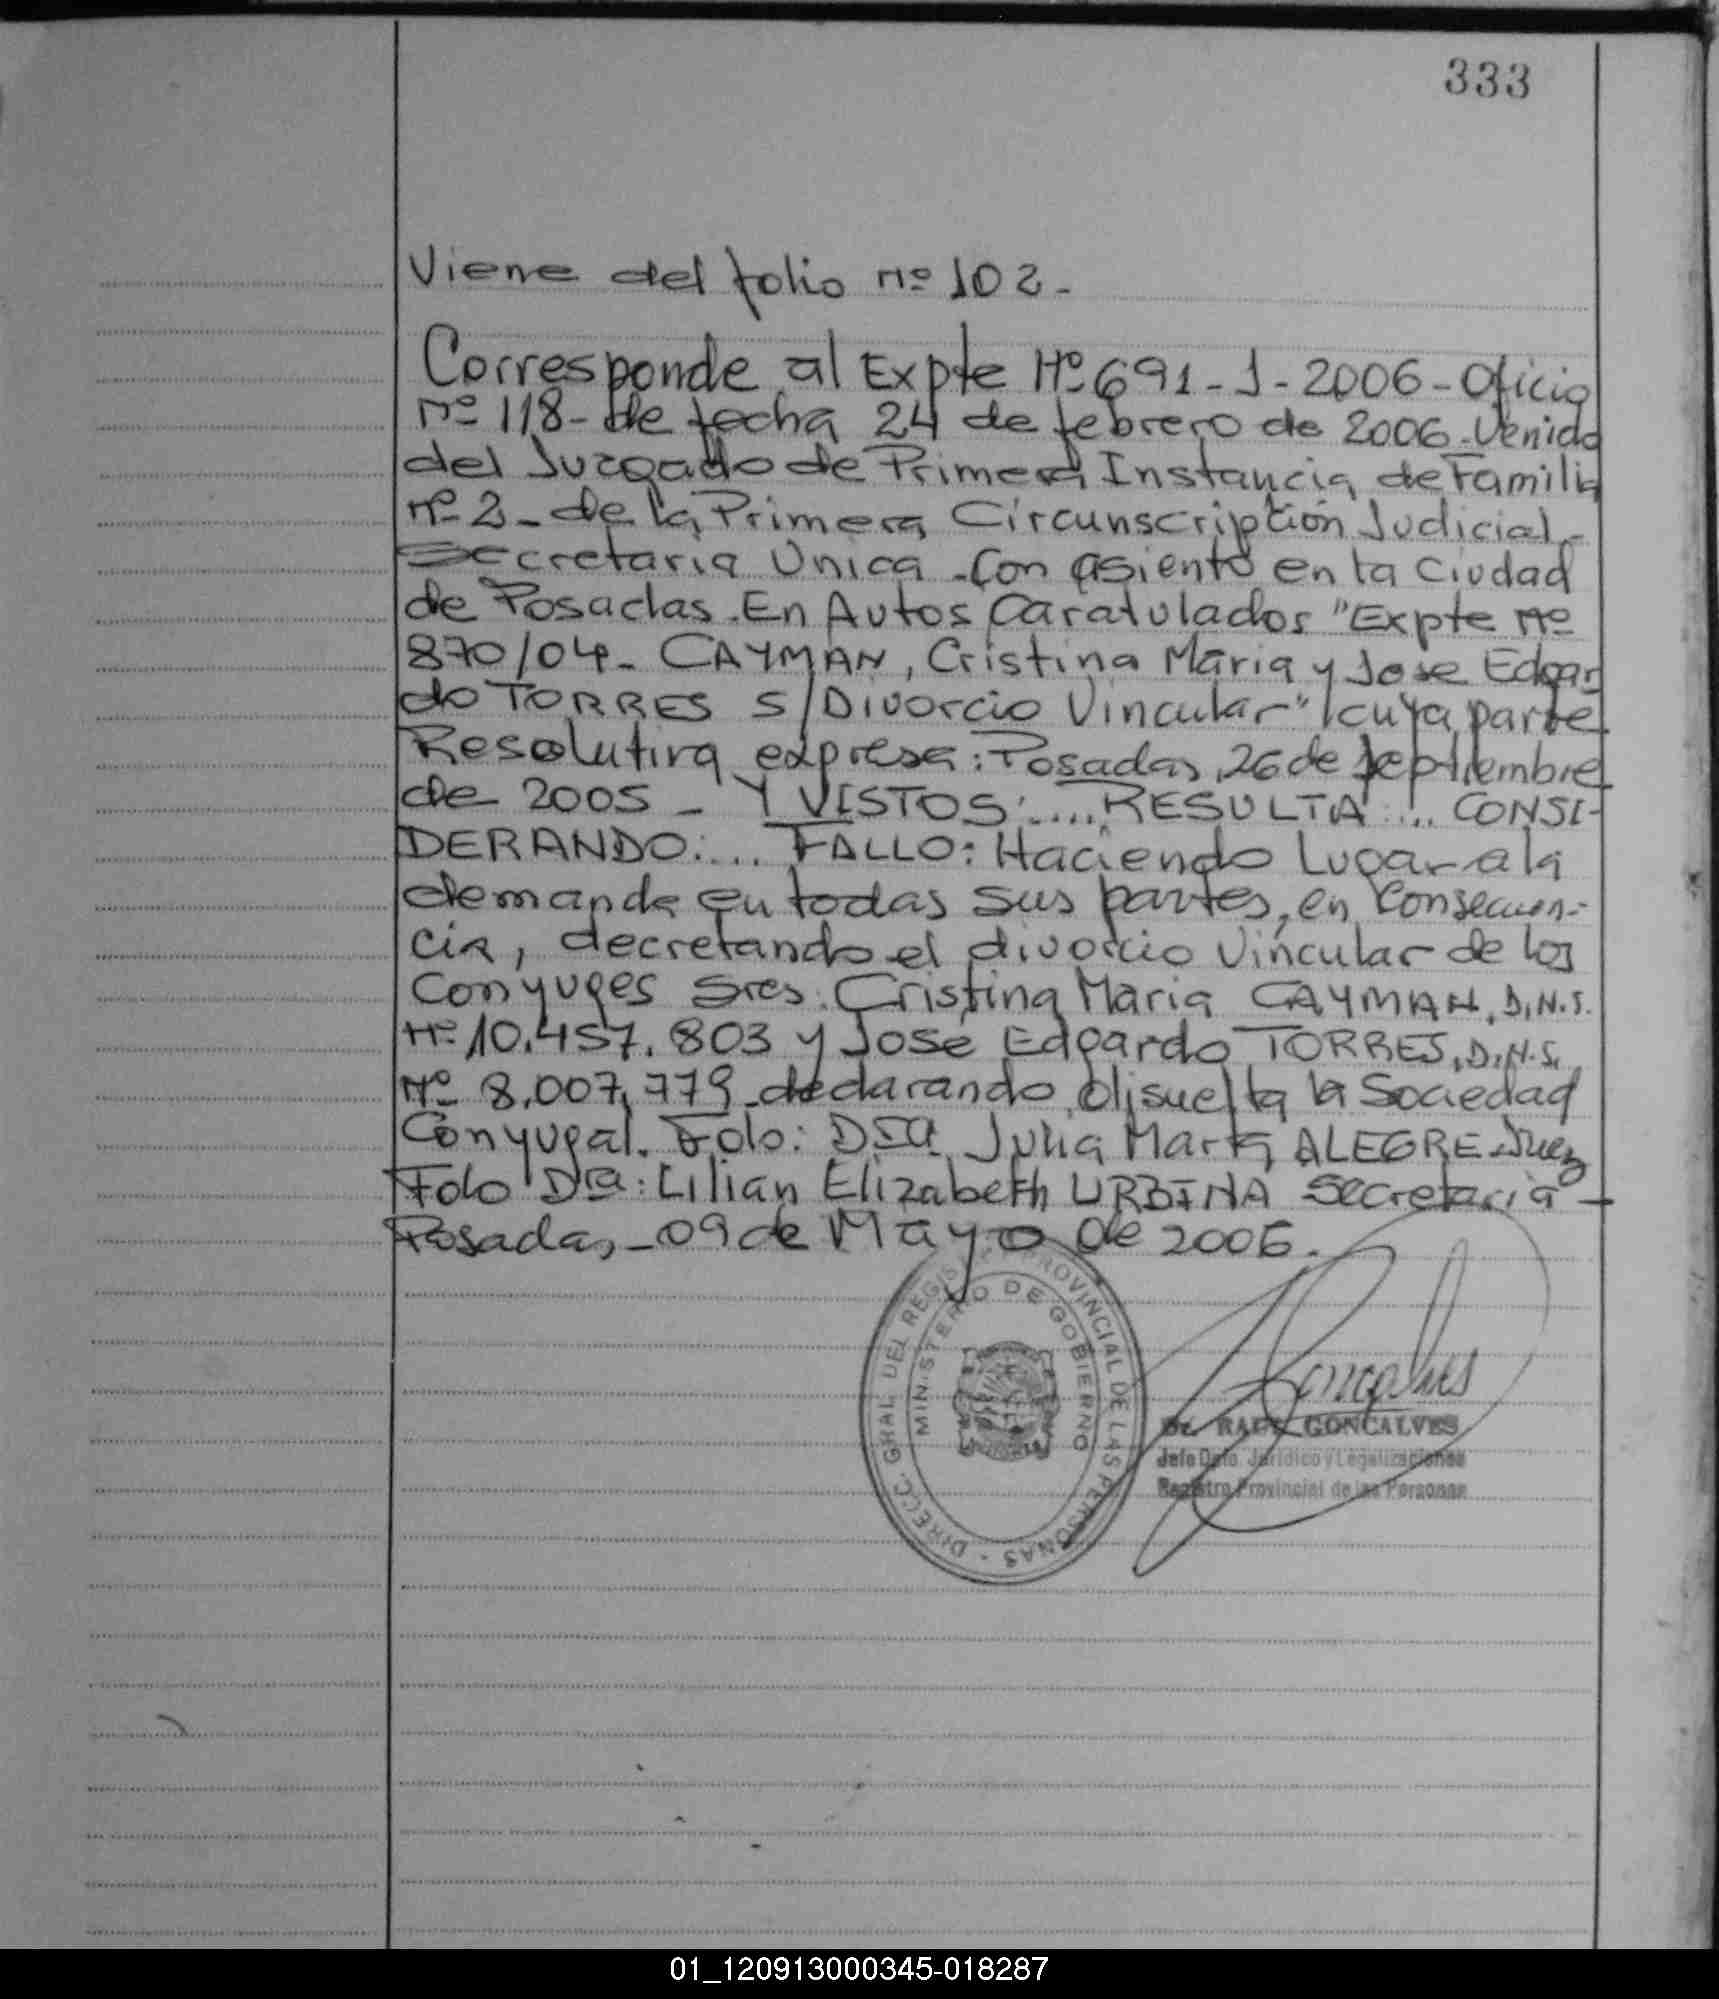 333
Viene del folio nº 102.
Corresponde al Expte Nº 691-J-2006-Oficio
nº 118- de fecha 24 de febrero de 2006-Venido
del Juzgado de Primera Instancia de Familia
nº 2- de la Primera Circunscripción Judicial-
Secretaria Unica -Con asiento en la Ciudad
de Posadas. En Autos Caratulados "Expte Nº
870/04- CAYMAN, Cristina Maria y Jose Edgar
do TORRES S/Divorcio Vincular" cuya parte
Resolutiva expresa: Posadas, 26 de septiembre
de 2005 - Y VISTOS:.... RESULTA:... CONSI-
DERANDO:... FALLO: Haciendo Lugar a la
demanda en todas sus partes, en Consecuen-
cia, decretando el divorcio Vincular de los
Conyuges Sres. Cristina Maria CAYMAN, D.N.I.
Nº 10.457.803 y José Edgardo TORRES, D.N.I.
Nº 8.007.779 declarando disuelta la Sociedad
Conyugal. Fdo: Dra Julia Marta ALEGRE-Juez
Fdo Dra: Lilian Elizabeth URBINA Secretaria-
Posadas, -09 de Mayo de 2006.
DIRECC. GRAL. DEL REGISTRO PROVINCIAL DE LAS PERSONAS
MINISTERIO DE GOBIERNO
Goncalves
Dr. RAUL GONCALVES
Jefe Dpto. Jurídico y Legalizaciones
Registro Provincial de las Personas
01_120913000345-018287